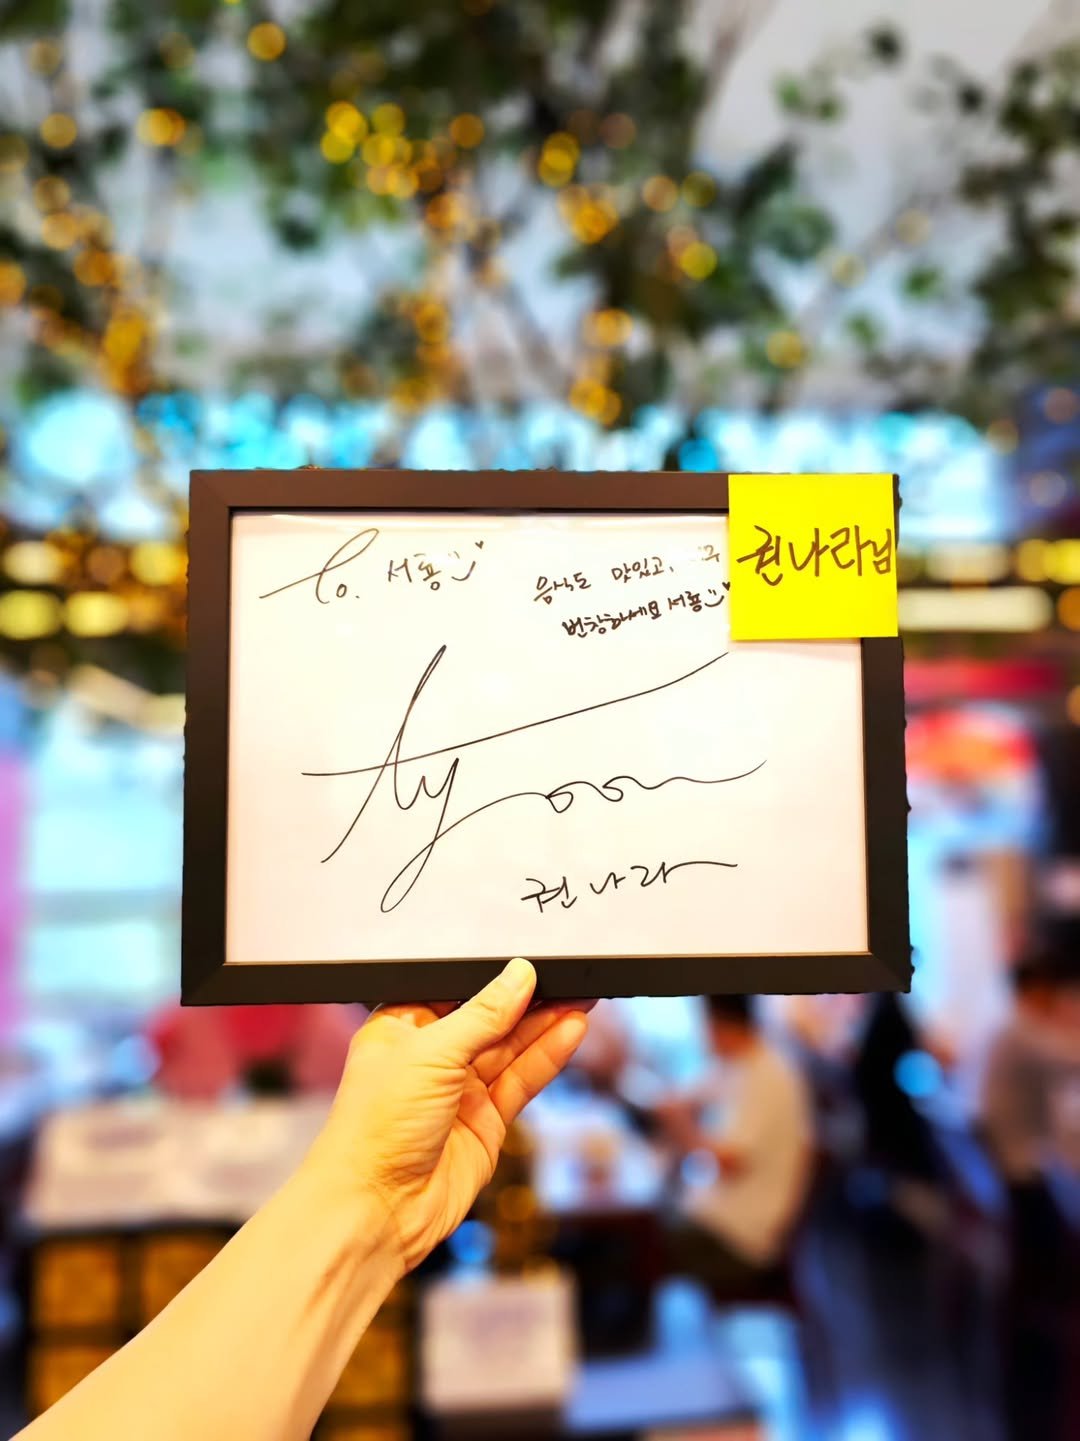 To. 서룡
음식도 맛있고,
번창하세요 서룡
권나라님
권나라